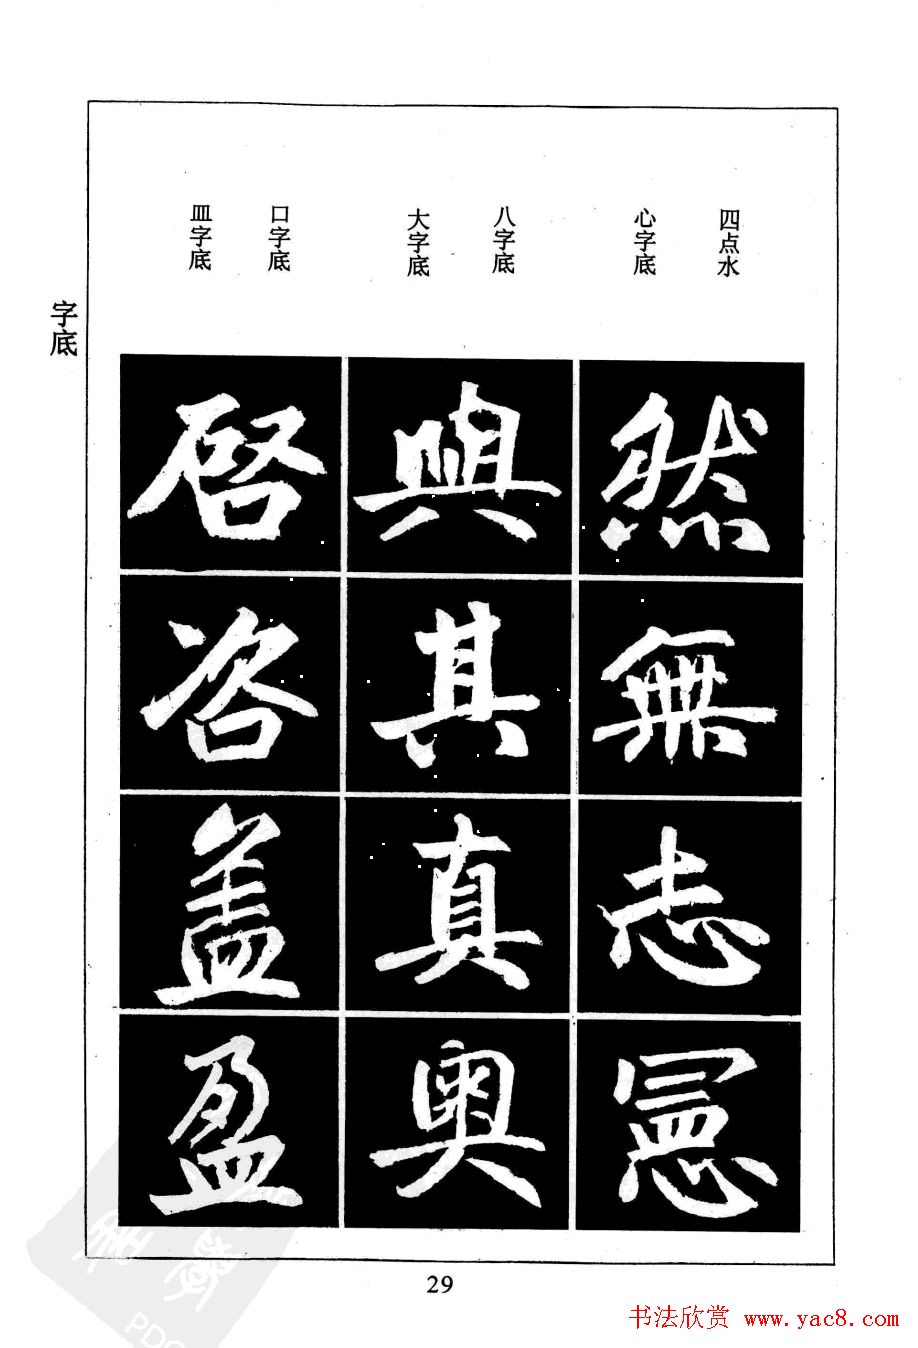 四点水
心字底
八字底
大字底
口字底
皿字底
字底
然無志憲
興其真奥
啓咨盖盈
29
书法欣赏 www.yac8.com